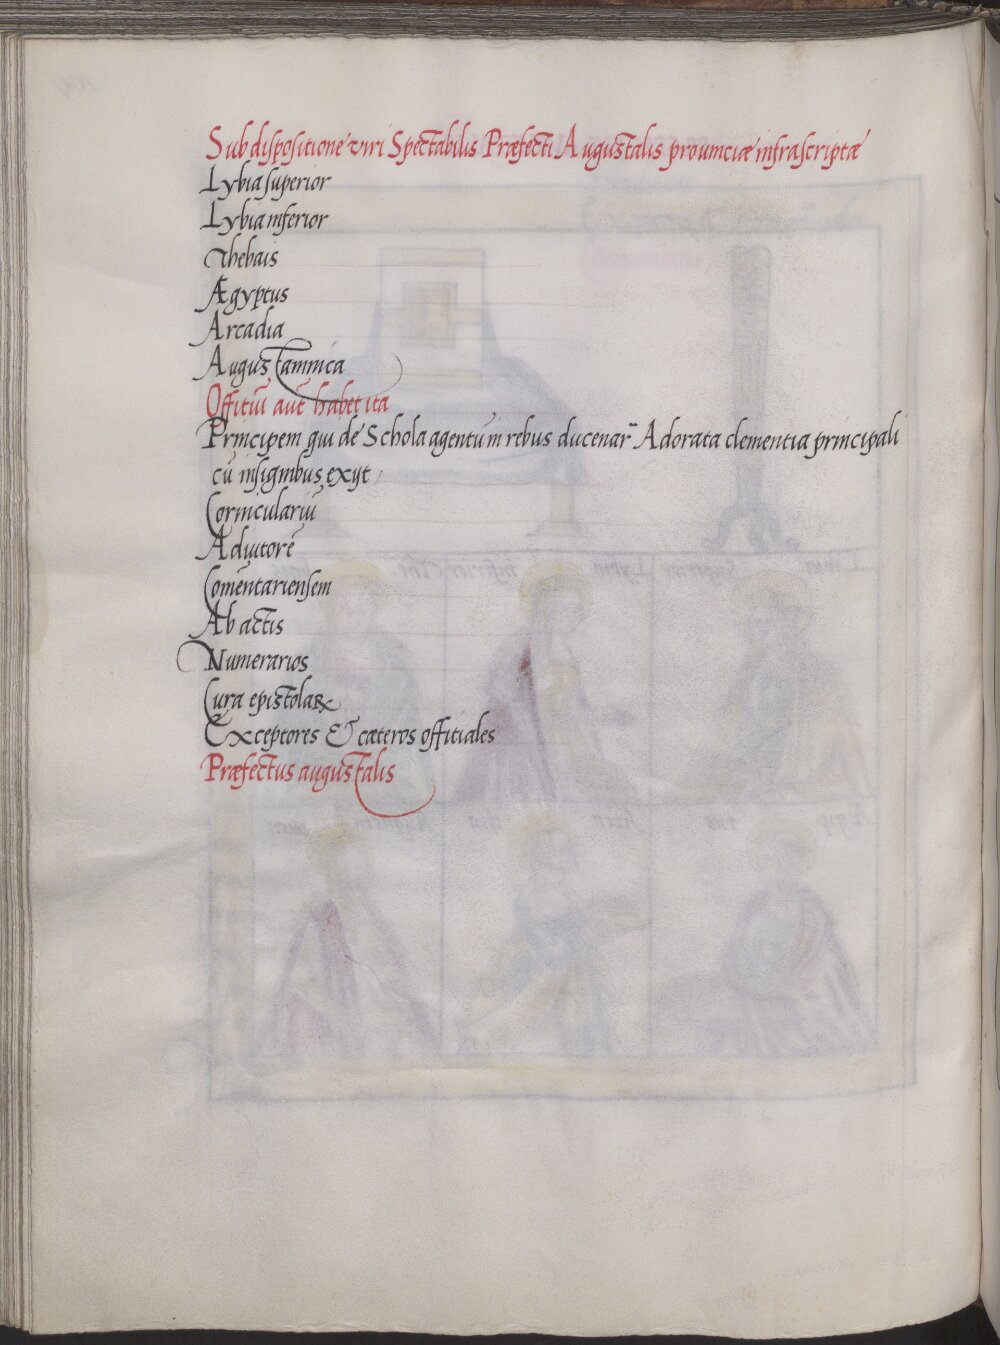 Sub dispositione viri Spectabilis Præfecti Augustalis prouinciæ infrascriptæ
Lybia superior
Lybia inferior
Thebais
Ægyptus
Arcadia
Augustamnica
Offitiū aut̄ habet ita
Principem qui de Schola agentum in rebus ducenar̄ Adorata clementia principali
cū insignibus exijt
Corniculariū
Adiutorē
Comentariensem
Ab actis
Numerarios
Cura epistolaꝝ
Exceptores & cæteros offitiales
Præfectus augustalis